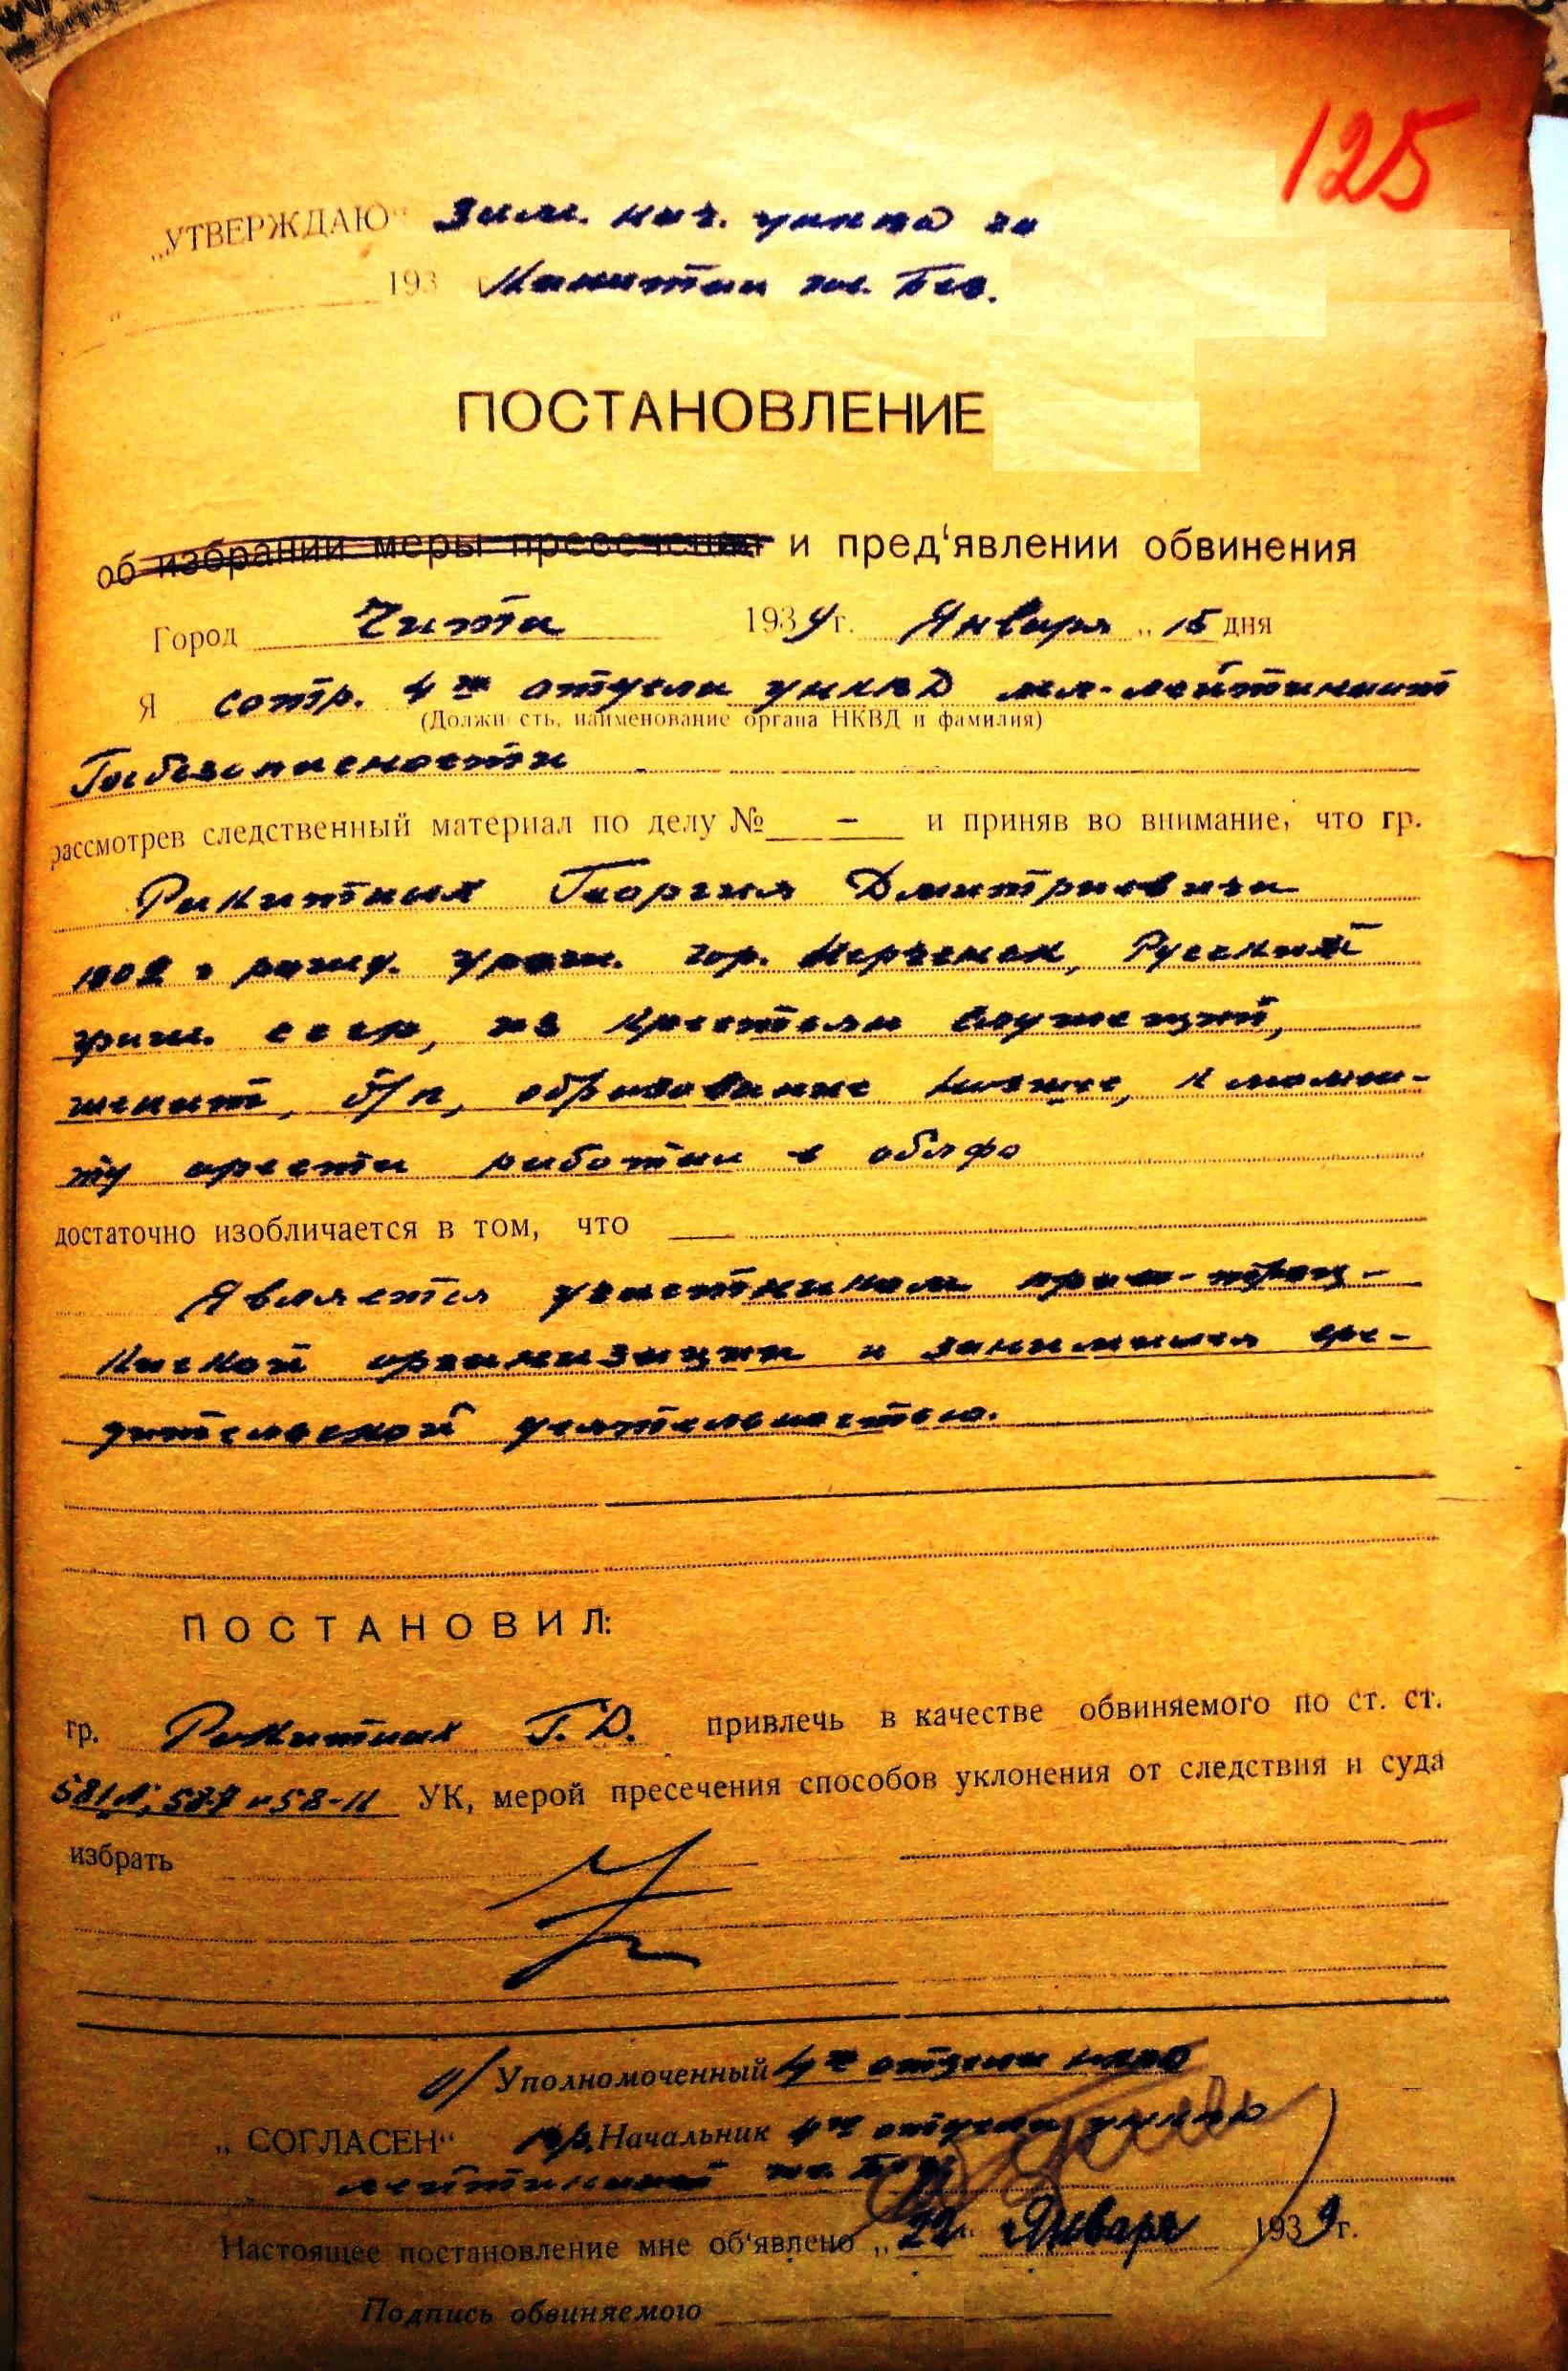 125
„УТВЕРЖДАЮ“ Зам. нач. унквд чо
193 Капитан гос. Без.
ПОСТАНОВЛЕНИЕ
об избрании меры пресечения и пред'явлении обвинения
Город Чита 1939 г. Января „ 15 дня
Я сотр. 4го отдела УНКВД мл-лейтенант
(Должн сть, наименование органа НКВД и фамилия)
Госбезопасности
рассмотрев следственный материал по делу № - и приняв во внимание, что гр.
Ракитных Георгия Дмитриевича
г рожд. урож. гор. Нерченск, Русский
граж. ссср, из крестьян служащий,
женат, б/п, образование к момен-
ту ареста работал в облфо
достаточно изобличается в том, что
Является участником право-троц-
кисской организации и занимался вре-
дительской деятельностью.
ПОСТАНОВИЛ:
гр. Ракитных Г. Д. привлечь в качестве обвиняемого по ст. ст.
58-11 УК, мерой пресечения способов уклонения от следствия и суда
избрать
Уполномоченный 4го отдела
„СОГЛАСЕН“ Начальник 4го отдела
лейтенант гос. Без.
Настоящее постановление мне об'явлено „22“ Января 1939 г.
Подпись обвиняемого